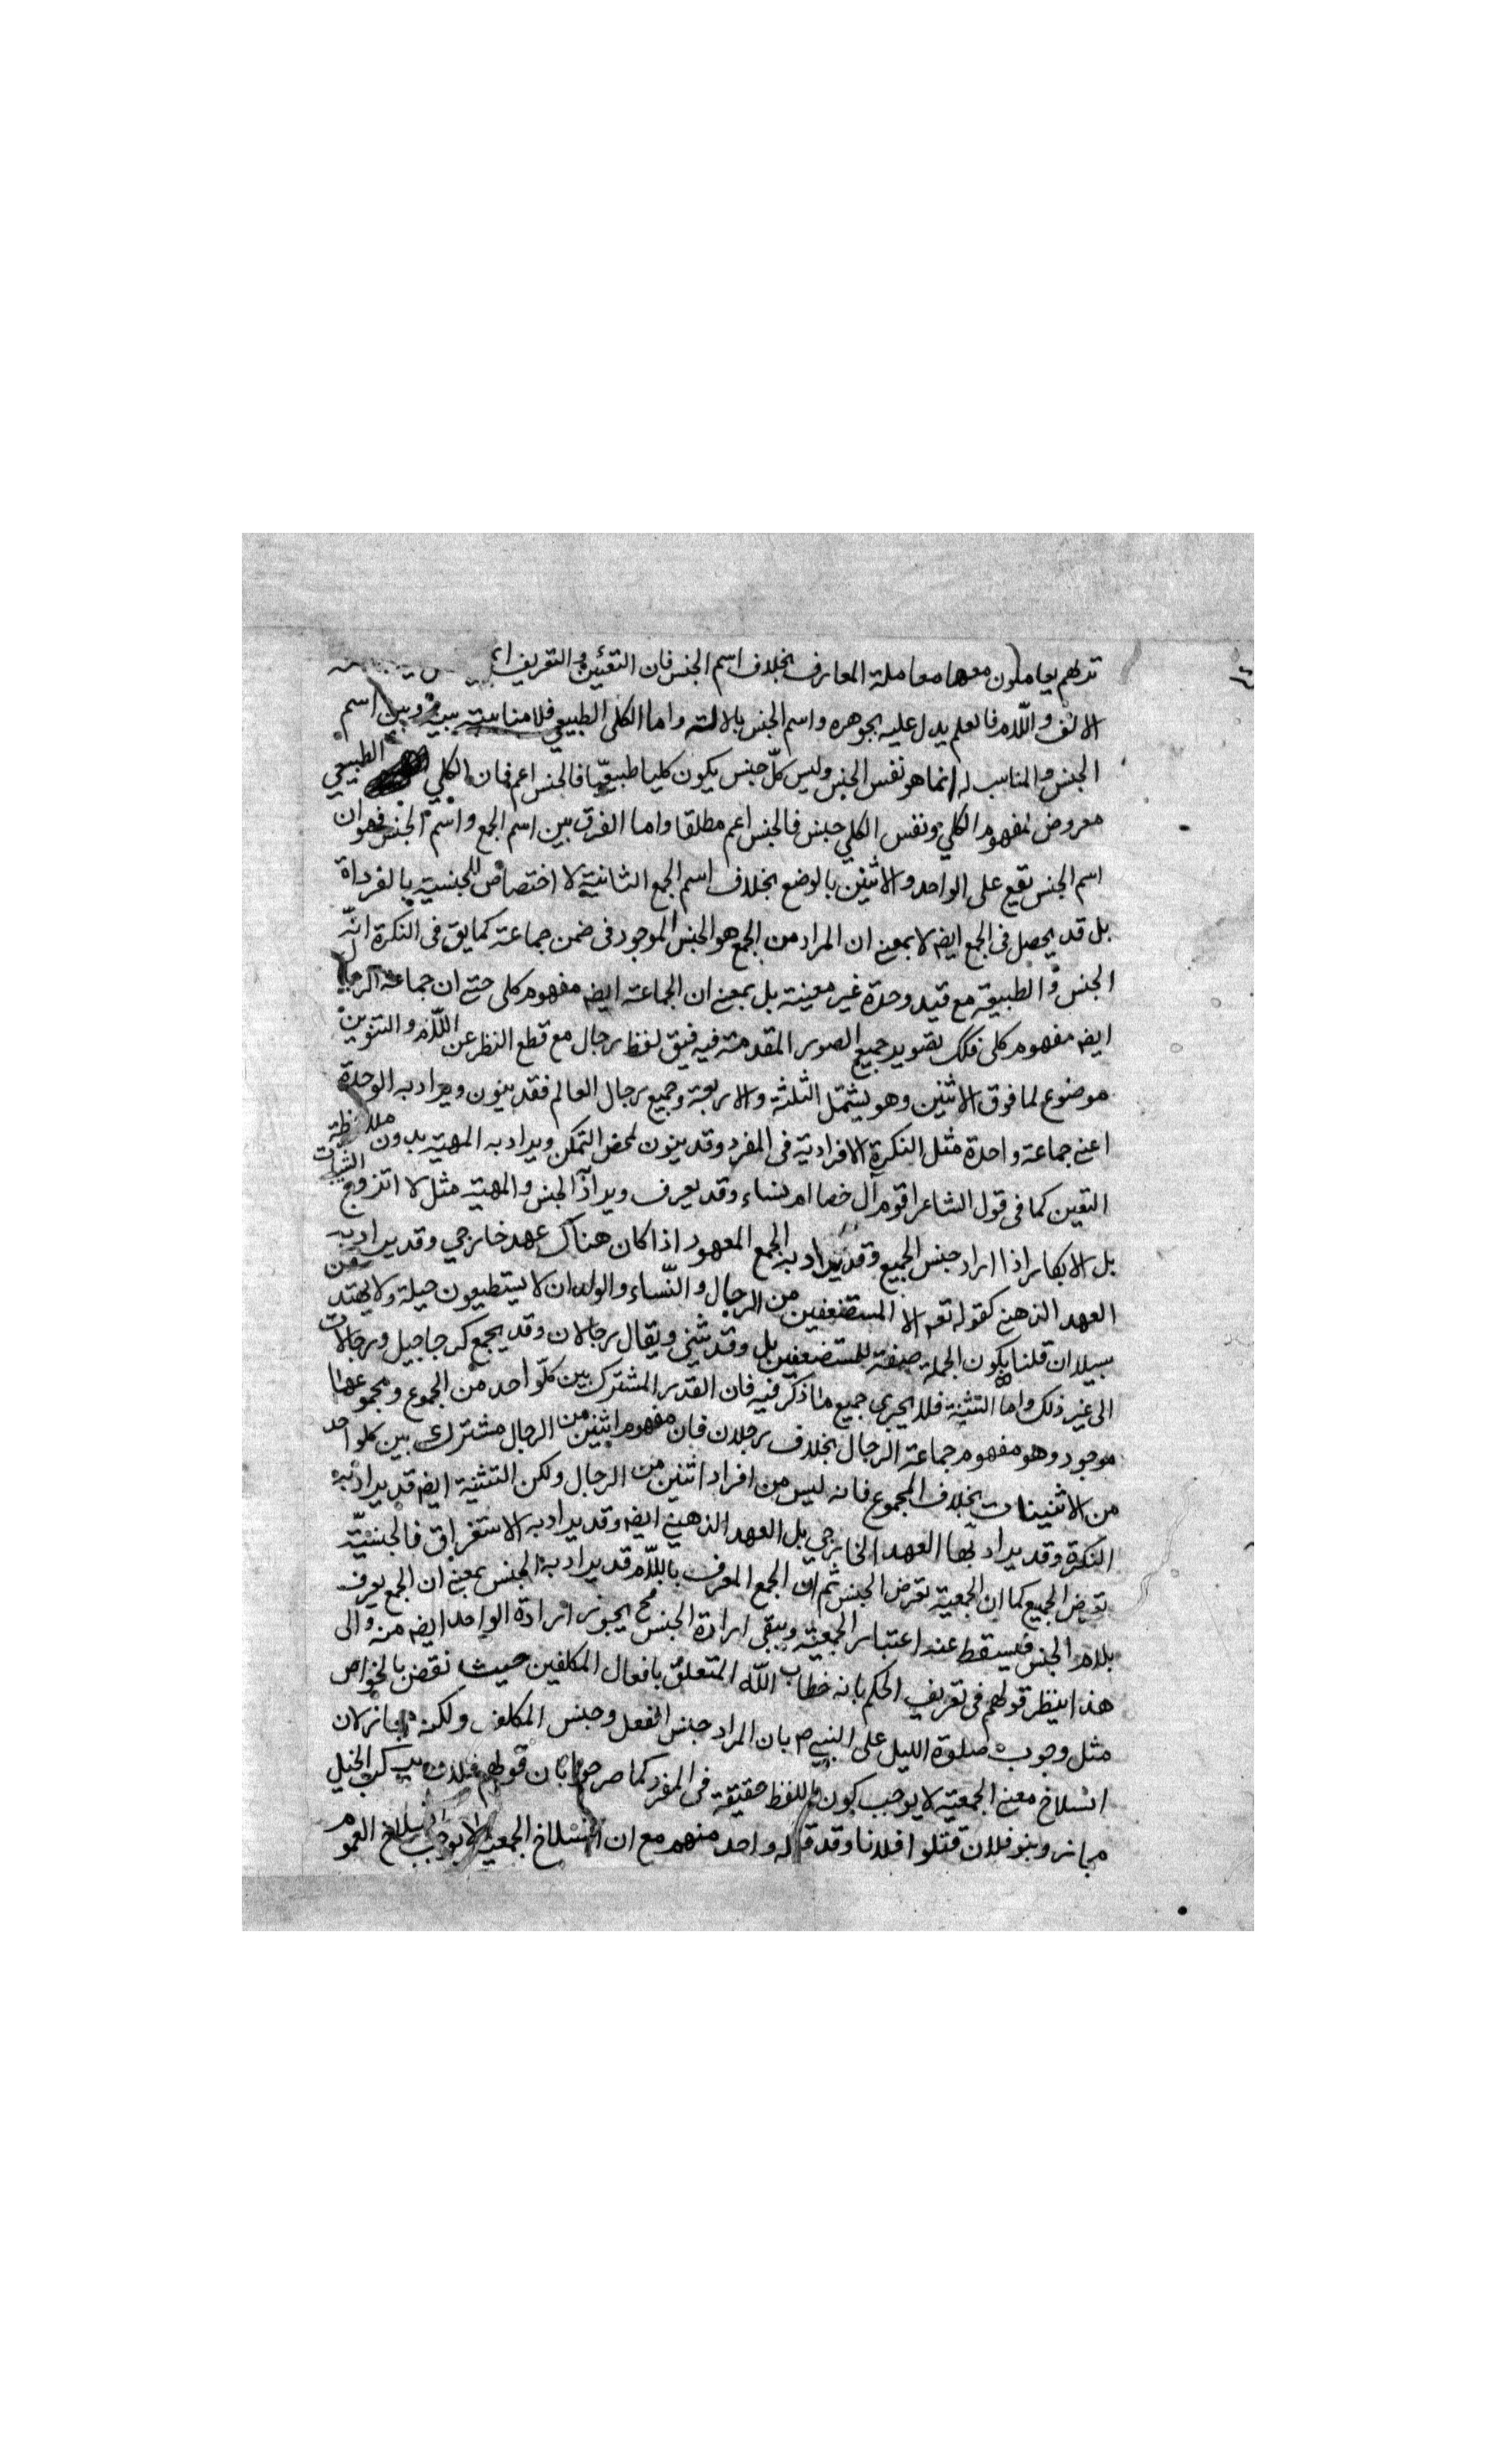 تدلهم يعاملون معها معاملة المعارف بخلاف اسم الجنس فان التعيّن والتعريف
الالف واللام فالعلم يدل عليه بجوهره واسم الجنس بالالة واما الكلى الطبيعي فلا مناسبة بينه وبين اسم
الجنس والمناسب له انما هو نفس الجنس وليس كلّ جنس يكون كليا طبيعيّا فالجنس اعم فان الكلي الطبيعي
معروض لمفهوم الكلي ونفس الكلي جنس فالجنس اعم مطلقا واما الفرق بين اسم الجمع واسم الجنس فهو ان
اسم الجنس يقع على الواحد والاثنين بالوضع بخلاف اسم الجمع الثانية لا اختصاص للجنسية بالمفرداة
بل قد يحصل فى الجمع ايضا لا بمعنى ان المراد من الجمع هو الجنس الموجود فى ضمن جماعة كما يق فى النكرة انّه
الجنس والطبيعة مع قيد وحدة غير معينة بل بمعنى ان الجماعة ايضا مفهوم كلى حتى ان جماعة الرجال
ايضا مفهوم كلى فلك تصوير جميع الصور المقدمة فيه فيق لفظ رجال مع قطع النظر عن اللام والتنوين
موضوع لما فوق الاثنين وهو يشتمل الثلثة والاربعة وجميع رجال العالم فقد ينون ويراد به الوحدة
اعنى جماعة واحدة مثل النكرة الافرادية فى المفرد وقد ينون لمحض التمكن ويراد به المهية بدون ملاحظة
التعين كما فى قول الشاعر اقوم آل حصن ام نساء وقد يعرف ويراد الجنس والمهية مثل لا اتزوج الثيبات
بل الابكار اذا اراد جنس الجميع وقد يراد به الجمع المعهود اذا كان هناك عهد خارجي وقد يراد به
العهد الذهنى كقوله تعم الا المستضعفين من الرجال والنّساء والولدان لا يستطيعون حيلة ولا يهتدون
سبيلا ان قلنا بكون الجملة صفة للمستضعفين بل وقد يثنى ويقال رجالان وقد يجمع كرجاجيل ورجالات
الى غير ذلك واما التثنية فلا يجرى جميع ما ذكر فيه فان القدر المشترك بين كلّ واحد من الجموع ومجموعها
موجود وهو مفهوم جماعة الرجال بخلاف رجلان فان مفهوم اثنين من الرجال مشترك بين كل واحد
من الاثنينات بخلاف المجموع فانه ليس من افراد اثنين من الرجال ولكن التثنية ايضا قد يراد به
النكرة وقد يراد بها العهد الخارجي بل العهد الذهنى ايضا وقد يراد به الاستغراق فالجنسيّة
تعرض الجميع كما ان الجمعية تعرض الجنس ثم ان الجمع المعرف باللام قد يراد به الجنس بمعنى ان الجمع يعرف
بلام الجنس فيسقط عنه اعتبار الجمعية ويبقى ارادة الجنس فح يجوز ارادة الواحد ايضا منه والى
هذا ينظر قولهم فى تعريف الحكم بانه خطاب اللّه المتعلق بافعال المكلفين حيث نقض بالخواص
مثل وجوب صلوة الليل على النبي ص بان المراد جنس الفعل وجنس المكلف ولكنه مجاز لان
انسلاخ معنى الجمعية لا يوجب كون اللفظ حقيقة فى المفرد كما صرحوا بان قولهم فلان يركب الخيل
مجاز وبنو فلان قتلوا فلانا وقد قتله واحد منهم مع ان انسلاخ الجمعية لا يوجب انسلاخ العموم